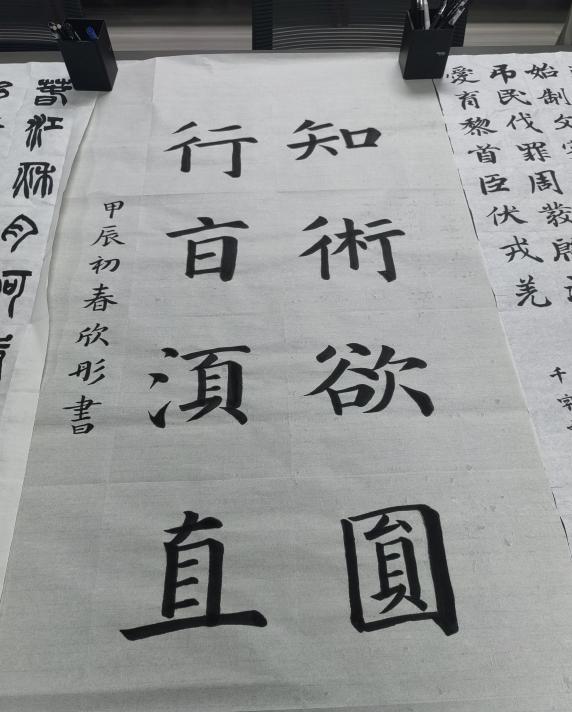 始制文字
吊民伐罪周發殷
愛育黎首臣伏戎羌
知術欲圓
行旨湏直
甲辰初春欣彤書